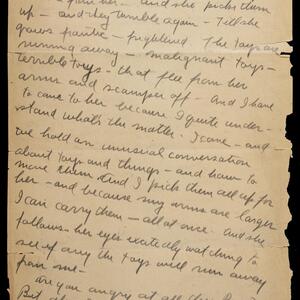 from her - and she picks them
up - and they tumble again - Till she
grows frantic - frightened The toys are
running away - malignant toys -
terrible toys - that flee from her
arms and scamper off - And I have
to come to her because I quite under-
stand what's the matter. I come - and -
we hold an unusual conversation
about toys and things - and how to
move them And I pick them all up for
her - and because my arms are larger
I can carry them - all at once. And she
follows her eyes excitedly watching to
see if any the toys will run away
from me -
Are you angry at all
But